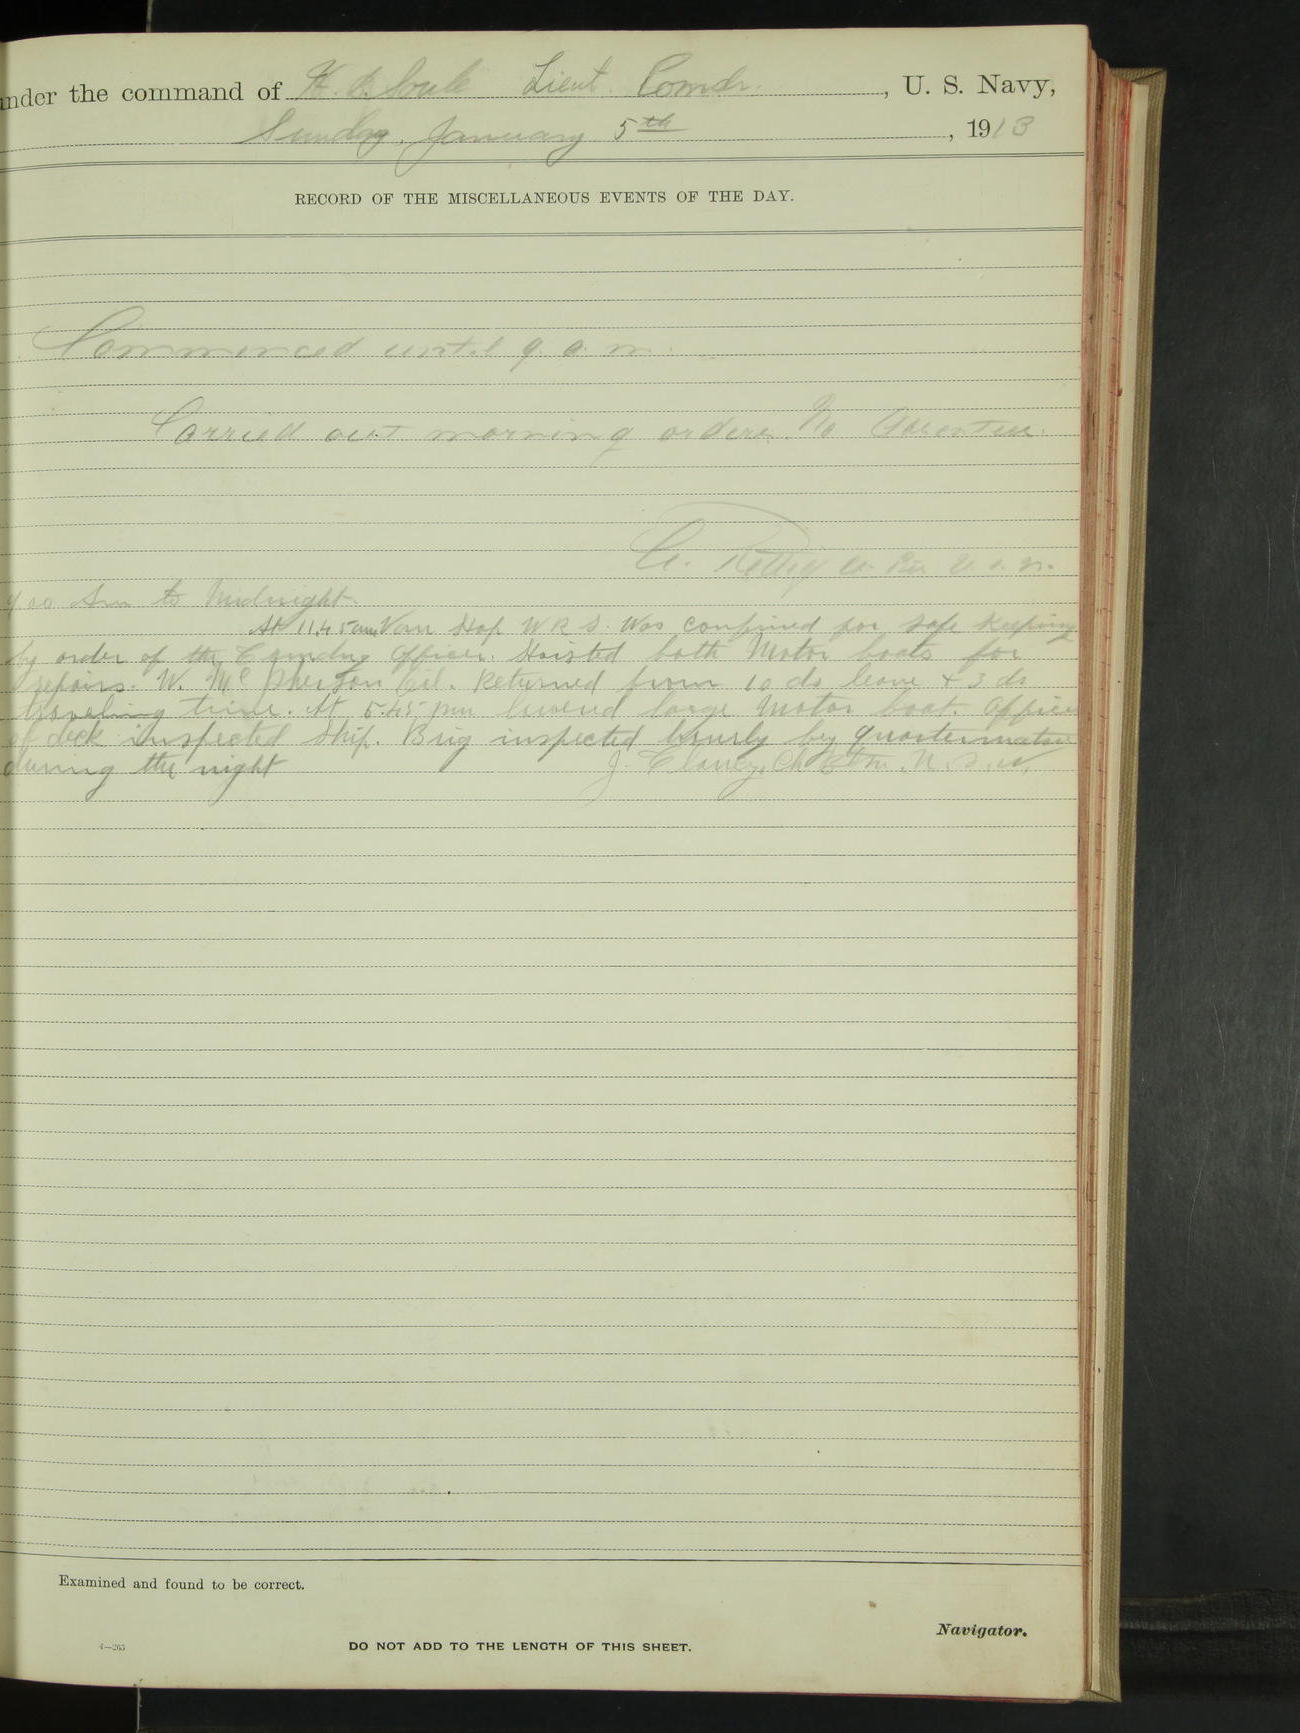 under the command of H. B. Soule Lieut. Comdr., U. S. Navy,
Sunday, January 5th, 1913
RECORD OF THE MISCELLANEOUS EVENTS OF THE DAY.
Commenced until 9. a. m.
Carried out morning orders. No Absentees.
Rettig U. S. N.
9.00 Am to Midnight
At 11.45 am Van W R S. Was confined for safe keeping
by order of the Comdng Officer. Hoisted both Motor boats for
repairs. W. McPherson Returned from 10 ds leave + 3 ds
traveling time. At 5.45 pm lowered large Motor boat. Officer
of deck Inspected Ship. Brig inspected hourly by quartermaster
during the night J. Clancy, Ch Btm. U. S. N.
Examined and found to be correct.
Navigator.
4—265
DO NOT ADD TO THE LENGTH OF THIS SHEET.